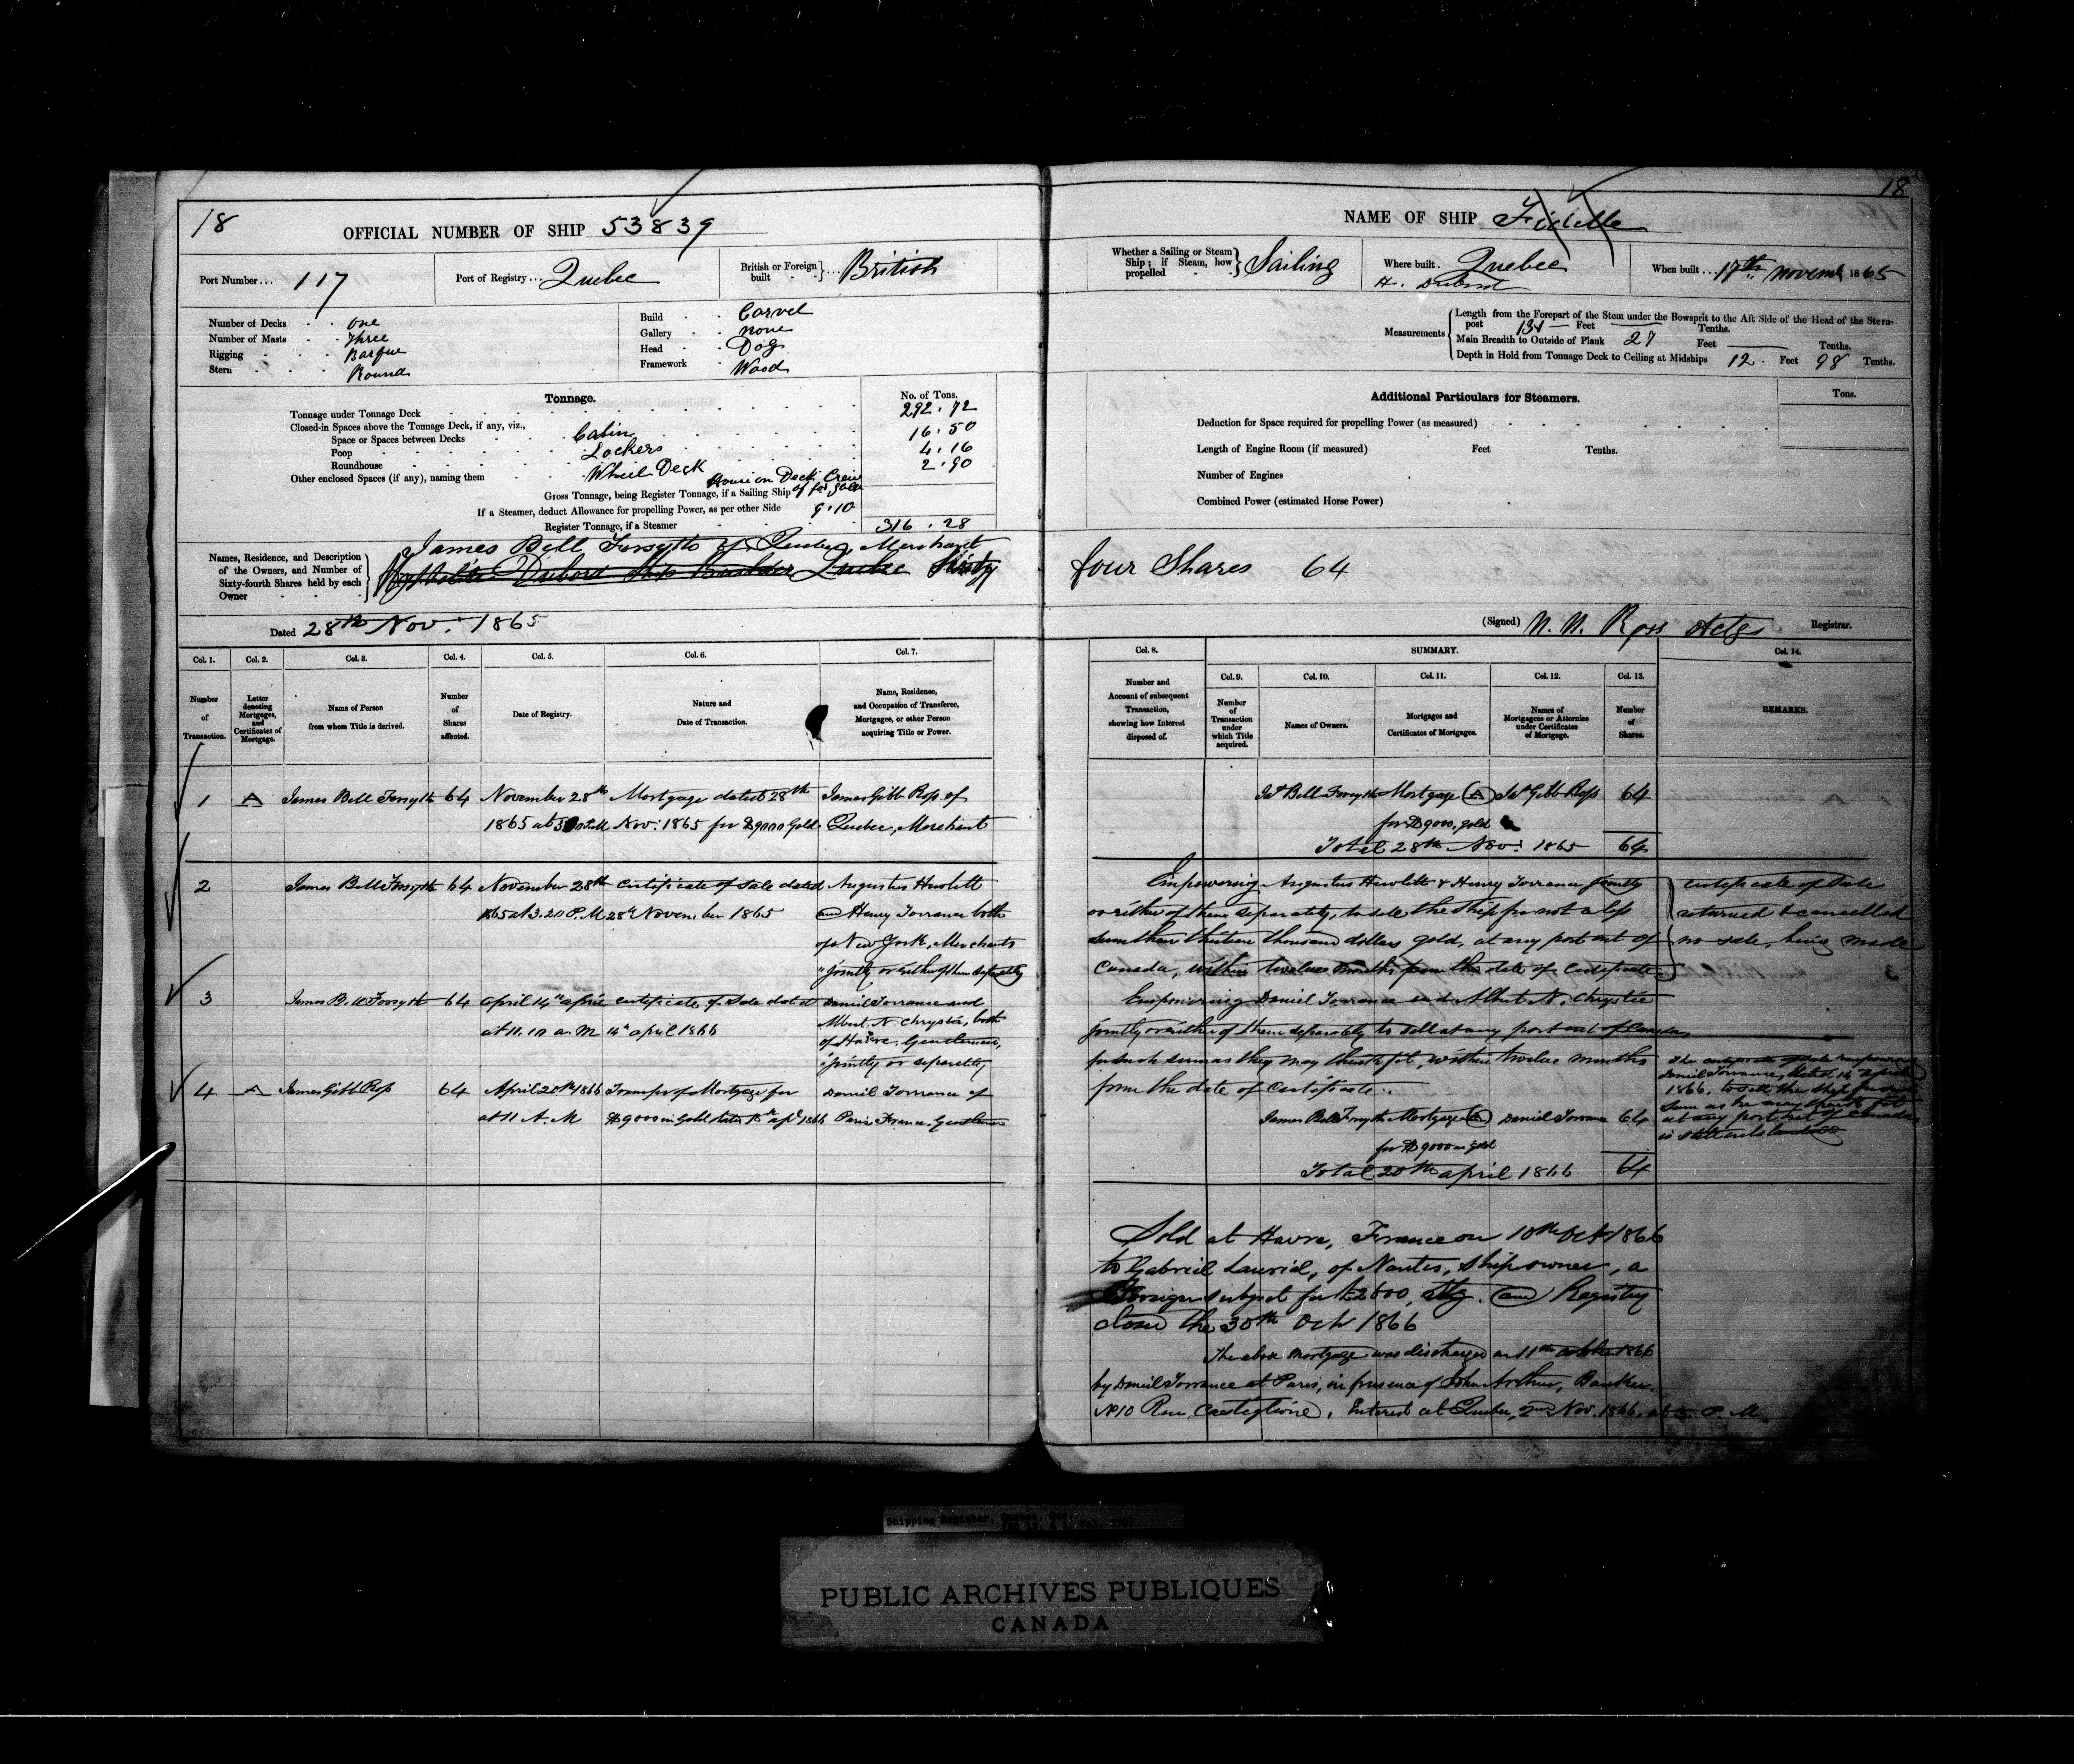 18
OFFICIAL NUMBER OF SHIP 53839
Port Number... 117
Port of Registry... Quebec
British or Foreign built } ... British
Number of Decks One
Number of Masts Three
Rigging Barque
Stern Round
Build Carvel
Gallery None
Head Dog
Framework Wood
Tonnage.
No. of Tons.
Tonnage under Tonnage Deck 292.72
Closed-in Spaces above the Tonnage Deck, if any, viz.,
Space or Spaces between Decks Cabin 16.50
Poop Lockers 4.16
Roundhouse Wheel Deck 2.90
Other enclosed Spaces (if any), naming them House on Deck Crew
Gross Tonnage, being Register Tonnage, if a Sailing Ship
If a Steamer, deduct Allowance for propelling Power, as per other Side 9.10
Register Tonnage, if a Steamer 316.28
Names, Residence, and Description of the Owners, and Number of Sixty-fourth Shares held by each Owner
James Bell Forsyth of Quebec, Merchant
Dubord Ship Builder Quebec Sixty
Dated 28th Nov: 1865
Col. 1. Col. 2. Col. 3. Col. 4. Col. 5. Col. 6. Col. 7.
Number of Transaction.
Letter denoting Mortgages, and Certificates of Mortgage.
Name of Person from whom Title is derived.
Number of Shares affected.
Date of Registry.
Nature and Date of Transaction.
Name, Residence, and Occupation of Transferee, Mortgagee, or other Person acquiring Title or Power.
1 A James Bell Forsyth 64 November 28th Mortgage dated 28th James Gibb Ross of
1865 at Nov: 1865 for $9000 Gold Quebec, Merchant
2 James Bell Forsyth 64 November 28th Certificate of Sale dated Augustus Hewlett
1865 at 3.20 P.M 28th November 1865 and Henry Torrance both
of New York, Merchants
"jointly or either of them separately
3 James Bell Forsyth 64 April 14th April Certificate of Sale dated Daniel Torrance and
at 11.10 a.M 14th April 1866 Albert N. Chrystie, both
of Havre, Gentlemen,
"jointly or separately
4 A James Gibb Ross 64 April 20th 1866 Transfer of Mortgage for Daniel Torrance of
at 11 A.M $9000 in Gold dated Apl 1866 Paris France, Gentleman
18
NAME OF SHIP Fidelle
Whether a Sailing or Steam Ship; if Steam, how propelled } Sailing
Where built Quebec
H. Dubord
When built... 17th Novemb 1865
Measurements
Length from the Forepart of the Stem under the Bowsprit to the Aft Side of the Head of the Stern-
post 131 Feet Tenths.
Main Breadth to Outside of Plank 27 Feet Tenths.
Depth in Hold from Tonnage Deck to Ceiling at Midships 12 Feet 98 Tenths.
Additional Particulars for Steamers.
Tons.
Deduction for Space required for propelling Power (as measured)
Length of Engine Room (if measured) Feet Tenths.
Number of Engines
Combined Power (estimated Horse Power)
four Shares 64
(Signed) N. N. Ross Actg Registrar.
Col. 8. SUMMARY. Col. 14.
Col. 9. Col. 10. Col. 11. Col. 12. Col. 13.
Number and Account of subsequent Transaction, showing how Interest disposed of.
Number of Transaction under which Title acquired.
Names of Owners.
Mortgages and Certificates of Mortgages.
Names of Mortgagees or Attornies under Certificates of Mortgage.
Number of Shares.
REMARKS.
Jas Bell Forsyth Mortgage (A) Jas Gibb Ross 64
for $9000, gold
Total 28th Nov: 1865 64
Empowering Augustus Hewlett & Henry Torrance jointly
or either of them separately, to sell the ship for not a less
sum than thirteen thousand dollars gold, at any port out of
Canada, within twelve months from the date of Certificate
Certificate of Sale
returned & cancelled
no sale, being made
Empowering Daniel Torrance and Albert N. Chrystie
jointly or either of them separately to sell at any port out of Canada
for such sum as they may think fit, within twelve months
from the date of Certificate.
The certificate of sale empowering
Daniel Torrance, dated 14 April
1866, to sell the ship for such
sum as he may think fit
at any port out of Canada
is
James Bell Forsyth Mortgage (A) Daniel Torrance 64
for $9000 in gold
Total 20th April 1866 64
Sold at Havre, France on 10th Oct 1866
to Gabriel Lauriol, of Nantes, Ship owner, a
Foreign subject for £2600, Stg. and Registry
closed the 30th Oct 1866
The above mortgage was discharged on 11th October 1866
by Daniel Torrance at Paris, in presence of John Arthur, Banker,
No 10 Rue Castiglione. Entered at Quebec, 2nd Nov. 1866, at 3. P. M.
Shipping Register, Quebec, Que.
PUBLIC ARCHIVES PUBLIQUES
CANADA